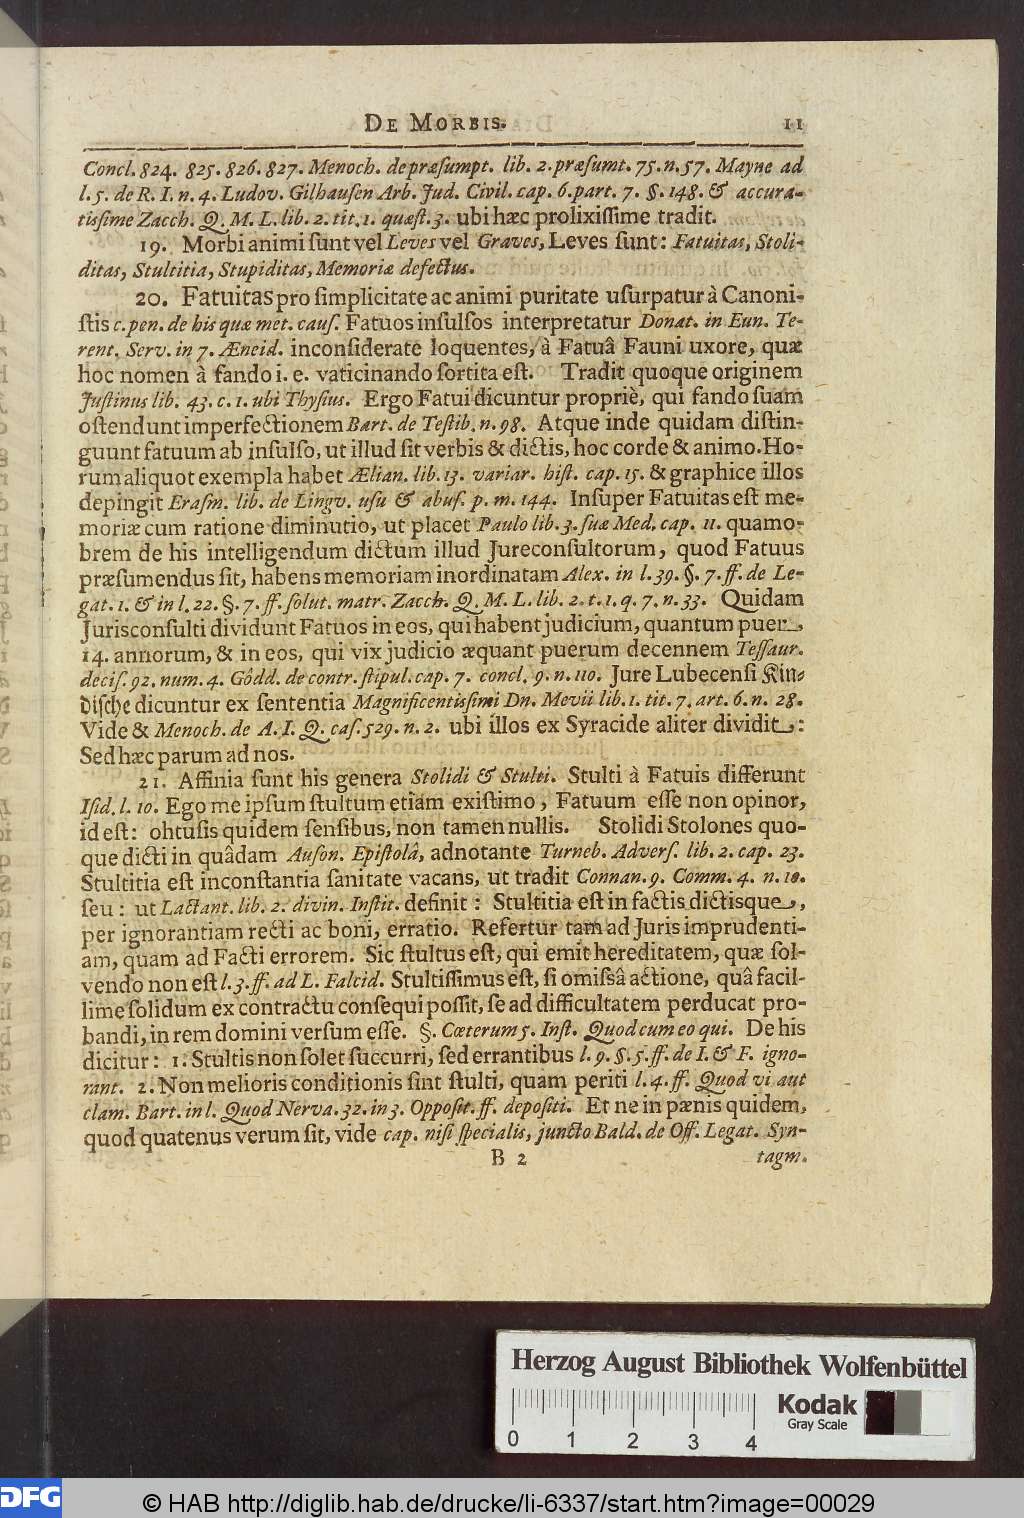 DE MORBIS. 11
Concl. 824. 825. 826. 827. Menoch. de præsumpt. lib. 2. præsumt. 75. n. 57. Mayne ad
l. 5. de R. I. n. 4. Ludov. Gilhausen Arb. Jud. Civil. cap. 6. part. 7. §. 148. & accura-
tissime Zacch. Q. M. L. lib. 2. tit. 1. quæst. 3. ubi hæc prolixissime tradit.
19. Morbi animi sunt vel Leves vel Graves, Leves sunt: Fatuitas, Stoli-
ditas, Stultitia, Stupiditas, Memoriæ defectus.
20. Fatuitas pro simplicitate ac animi puritate usurpatur à Canoni-
stis c. pen. de his quæ met. caus. Fatuos insulsos interpretatur Donat. in Eun. Te-
rent. Serv. in 7. Æneid. inconsiderate loquentes, à Fatuâ Fauni uxore, quæ
hoc nomen à fando i. e. vaticinando sortita est. Tradit quoque originem
Justinus lib. 43. c. 1. ubi Thysius. Ergo Fatui dicuntur propriè, qui fando suam
ostendunt imperfectionem Bart. de Testib. n. 98. Atque inde quidam distin-
guunt fatuum ab insulso, ut illud sit verbis & dictis, hoc corde & animo. Ho-
rum aliquot exempla habet Ælian. lib. 13. variar. hist. cap. 15. & graphice illos
depingit Erasm. lib. de Lingv. usu & abus. p. m. 144. Insuper Fatuitas est me-
moriæ cum ratione diminutio, ut placet Paulo lib. 3. suæ Med. cap. 11. quamo-
brem de his intelligendum dictum illud Jureconsultorum, quod Fatuus
præsumendus sit, habens memoriam inordinatam Alex. in l. 39. §. 7. ff. de Le-
gat. 1. & in l. 22. §. 7. ff. solut. matr. Zacch. Q. M. L. lib. 2. t. 1. q. 7. n. 33. Quidam
Jurisconsulti dividunt Fatuos in eos, qui habent judicium, quantum puer,
14. annorum, & in eos, qui vix judicio æquant puerum decennem Tessaur.
decis. 92. num. 4. Gödd. de contr. stipul. cap. 7. concl. 9. n. 110. Jure Lubecensi Kin-
dische dicuntur ex sententia Magnificentissimi Dn. Mevii lib. 1. tit. 7. art. 6. n. 28.
Vide & Menoch. de A. I. Q. cas. 529. n. 2. ubi illos ex Syracide aliter dividit:
Sed hæc parum ad nos.
21. Affinia sunt his genera Stolidi & Stulti. Stulti à Fatuis differunt
Isid. l. 10. Ego me ipsum stultum etiam existimo, Fatuum esse non opinor,
id est: ohtusis quidem sensibus, non tamen nullis. Stolidi Stolones quo-
que dicti in quâdam Auson. Epistolâ, adnotante Turneb. Advers. lib. 2. cap. 23.
Stultitia est inconstantia sanitate vacans, ut tradit Connan. 9. Comm. 4. n. 10.
seu: ut Lactant. lib. 2. divin. Instit. definit: Stultitia est in factis dictisque,
per ignorantiam recti ac boni, erratio. Refertur tam ad Juris imprudenti-
am, quam ad Facti errorem. Sic stultus est, qui emit hereditatem, quæ sol-
vendo non est l. 3. ff. ad L. Falcid. Stultissimus est, si omissâ actione, quâ facil-
lime solidum ex contractu consequi possit, se ad difficultatem perducat pro-
bandi, in rem domini versum esse. §. Cæterum 5. Inst. Quod cum eo qui. De his
dicitur: 1. Stultis non solet succurri, sed errantibus l. 9. §. 5. ff. de I. & F. igno-
rant. 2. Non melioris conditionis sint stulti, quam periti l. 4. ff. Quod vi aut
clam. Bart. in l. Quod Nerva. 32. in 3. Opposit. ff. depositi. Et ne in pænis quidem,
quod quatenus verum sit, vide cap. nisi specialis, juncto Bald. de Off. Legat. Syn-
B 2 tagm.
Herzog August Bibliothek Wolfenbüttel
Kodak
Gray Scale
0 1 2 3 4
DFG
© HAB http://diglib.hab.de/drucke/li-6337/start.htm?image=00029